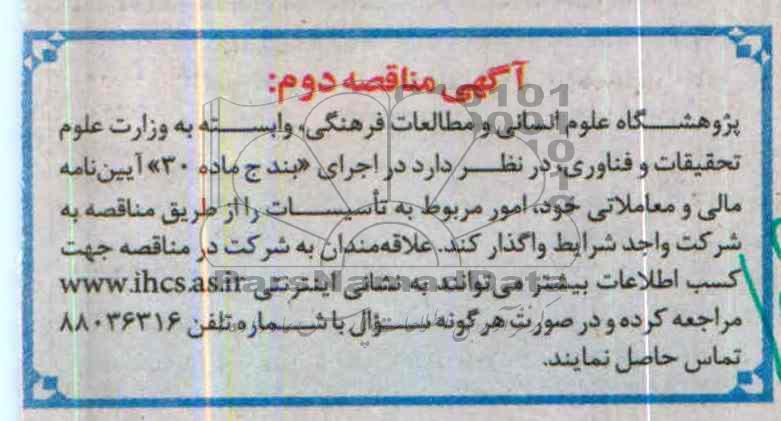 آگهی مناقصه دوم:
پژوهشگاه علوم انسانی و مطالعات فرهنگی، وابسته به وزارت علوم
تحقیقات و فناوری، در نظر دارد در اجرای «بند ج ماده ۳۰» آیین‌نامه
مالی و معاملاتی خود، امور مربوط به تأسیسات را از طریق مناقصه به
شرکت واجد شرایط واگذار کند. علاقه‌مندان به شرکت در مناقصه جهت
کسب اطلاعات بیشتر می‌توانند به نشانی اینترنتی www.ihcs.as.ir
مراجعه کرده و در صورت هر گونه سؤال با شماره تلفن ۸۸۰۳۶۳۱۶
تماس حاصل نمایند.
ParsNamadData